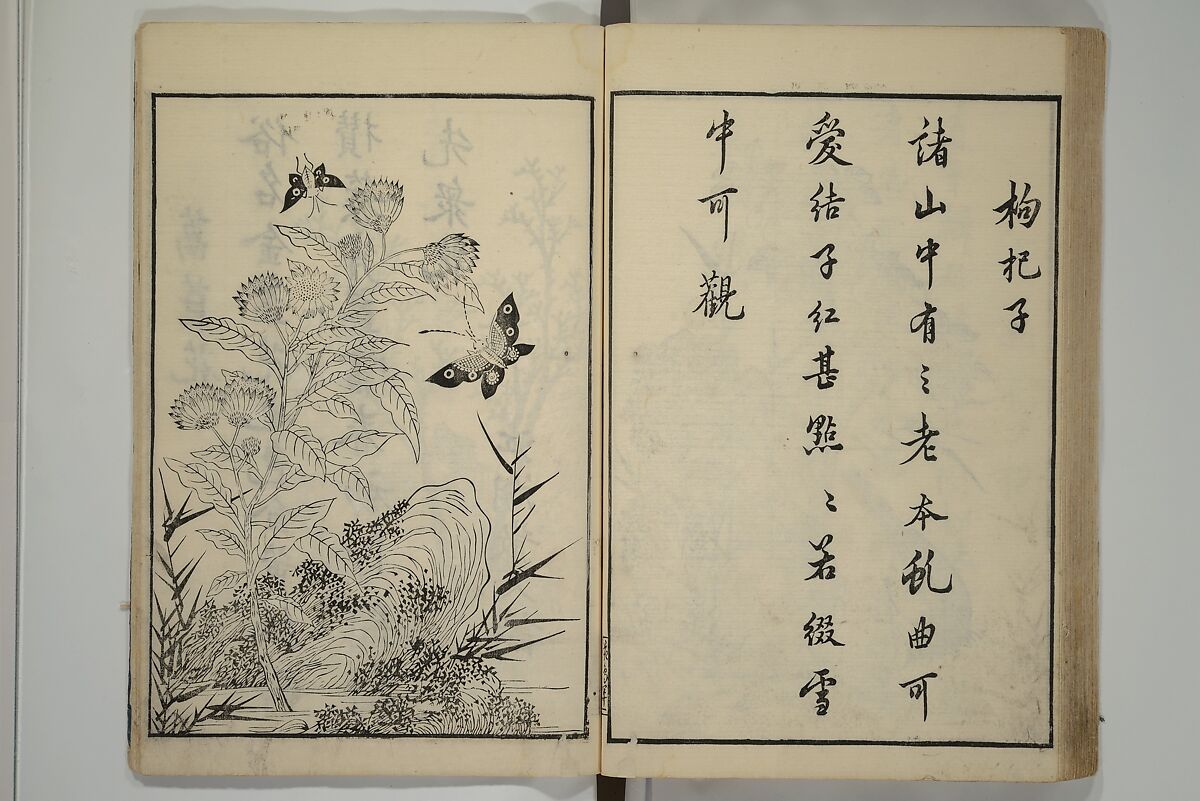 枸杞子
諸山中有之老本虬曲可
愛結子红甚點點若綴雪
中可觀